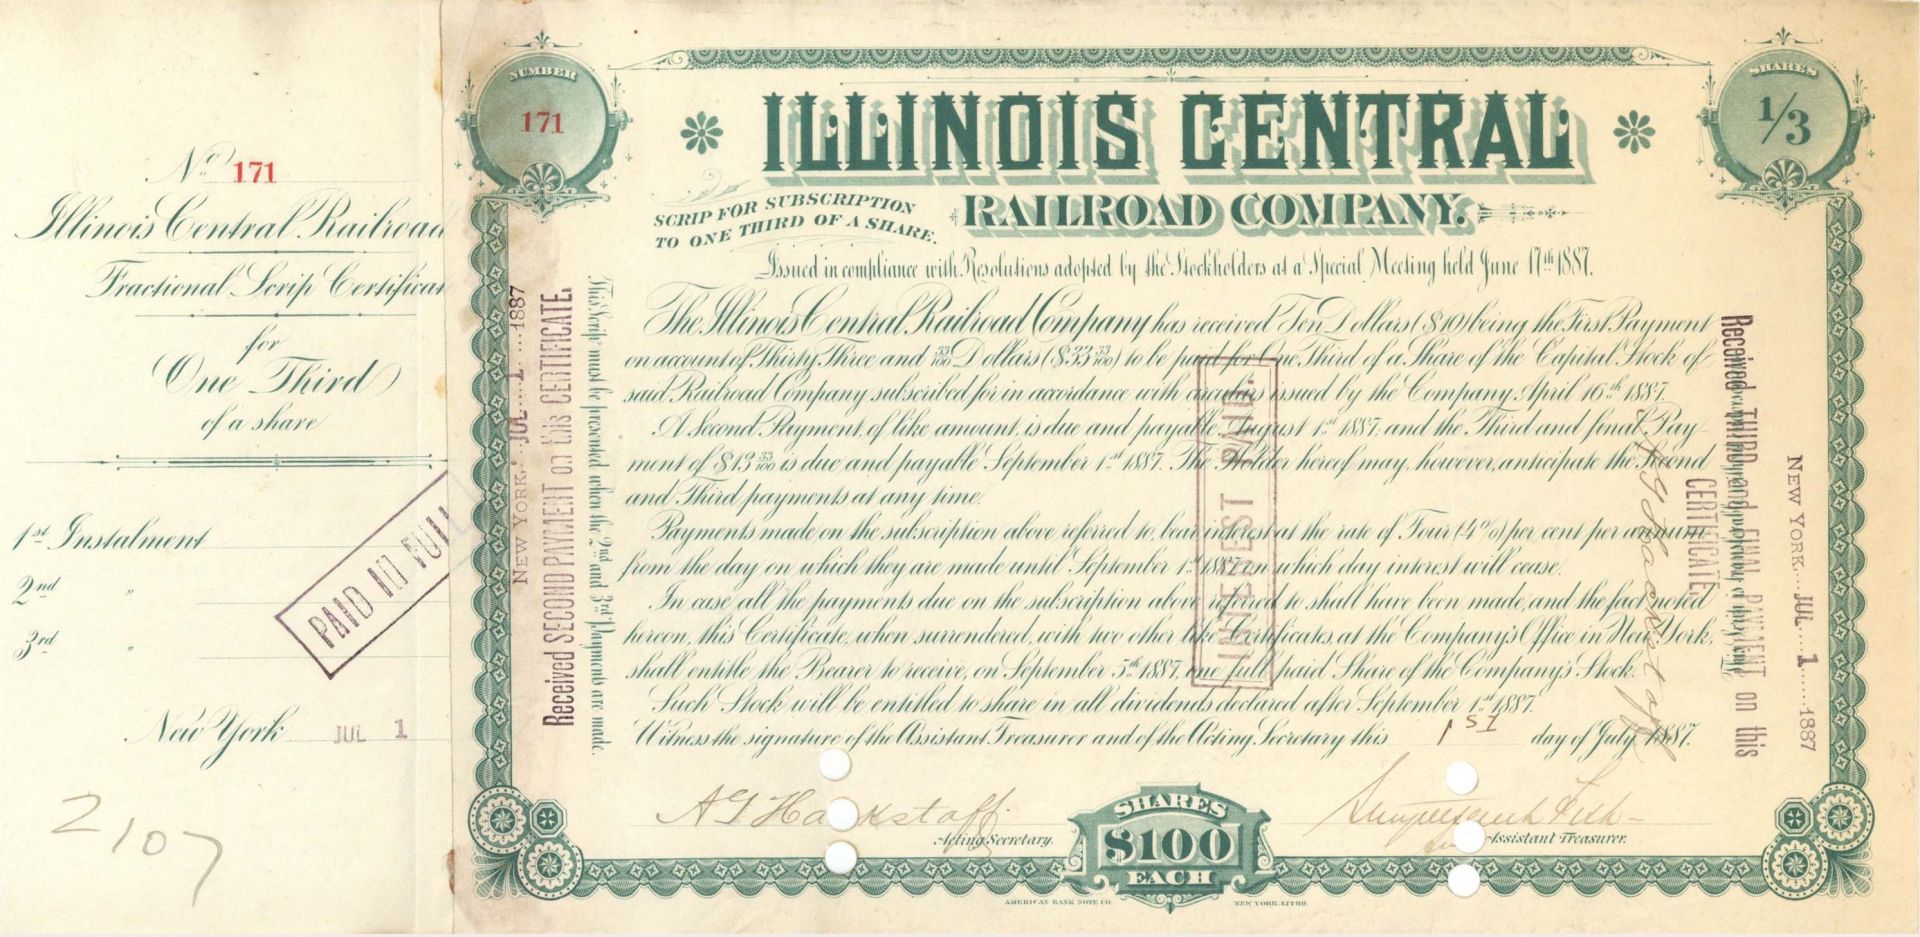 No 171
Illinois Central Railroad
Fractional Scrip Certificat
for
One Third
of a share
1st Instalment
2nd "
3rd "
PAID IN FULL
New York JUL 1
2107
NUMBER
171
SHARES
1/3
ILLINOIS CENTRAL
RAILROAD COMPANY.
SCRIP FOR SUBSCRIPTION
TO ONE THIRD OF A SHARE.
Issued in compliance with Resolutions adopted by the Stockholders at a Special Meeting held June 17th 1887.
The Illinois Central Railroad Company has received Ten Dollars ($10) being the First Payment
on account of Thirty Three and 33/100 Dollars ($33 33/100) to be paid for One Third of a Share of the Capital Stock of
said Railroad Company subscribed for in accordance with circulars issued by the Company April 16th 1887.
A Second Payment, of like amount, is due and payable August 1st 1887, and the Third and final Pay-
ment of $13 33/100 is due and payable September 1st 1887. The Holder hereof may, however, anticipate the Second
and Third payments at any time.
Payments made on the subscription above referred to, bear interest at the rate of Four (4%) per cent per annum
from the day on which they are made until September 1st 1887, on which day interest will cease.
In case all the payments due on the subscription above referred to shall have been made, and the fact noted
hereon, this Certificate, when surrendered, with two other like Certificates, at the Company's Office in New York,
shall entitle the Bearer to receive, on September 5th 1887, one full paid Share of the Company's Stock.
Such Stock will be entitled to share in all dividends declared after September 1st 1887.
Witness the signature of the Assistant Treasurer and of the Acting Secretary this 1st day of July, 1887.
A G Hackstaff
Acting Secretary.
Stuyvesant Fish
Assistant Treasurer.
SHARES
$100
EACH
AMERICAN BANK NOTE CO. NEW YORK, LITHO.
This Scrip must be presented when the 2nd and 3rd Payments are made.
NEW YORK, JUL 1 1887
Received SECOND PAYMENT on this CERTIFICATE.
INTEREST PAID.
Received THIRD and FINAL PAYMENT on this
CERTIFICATE.
NEW YORK JUL 1 1887
A G Hackstaff